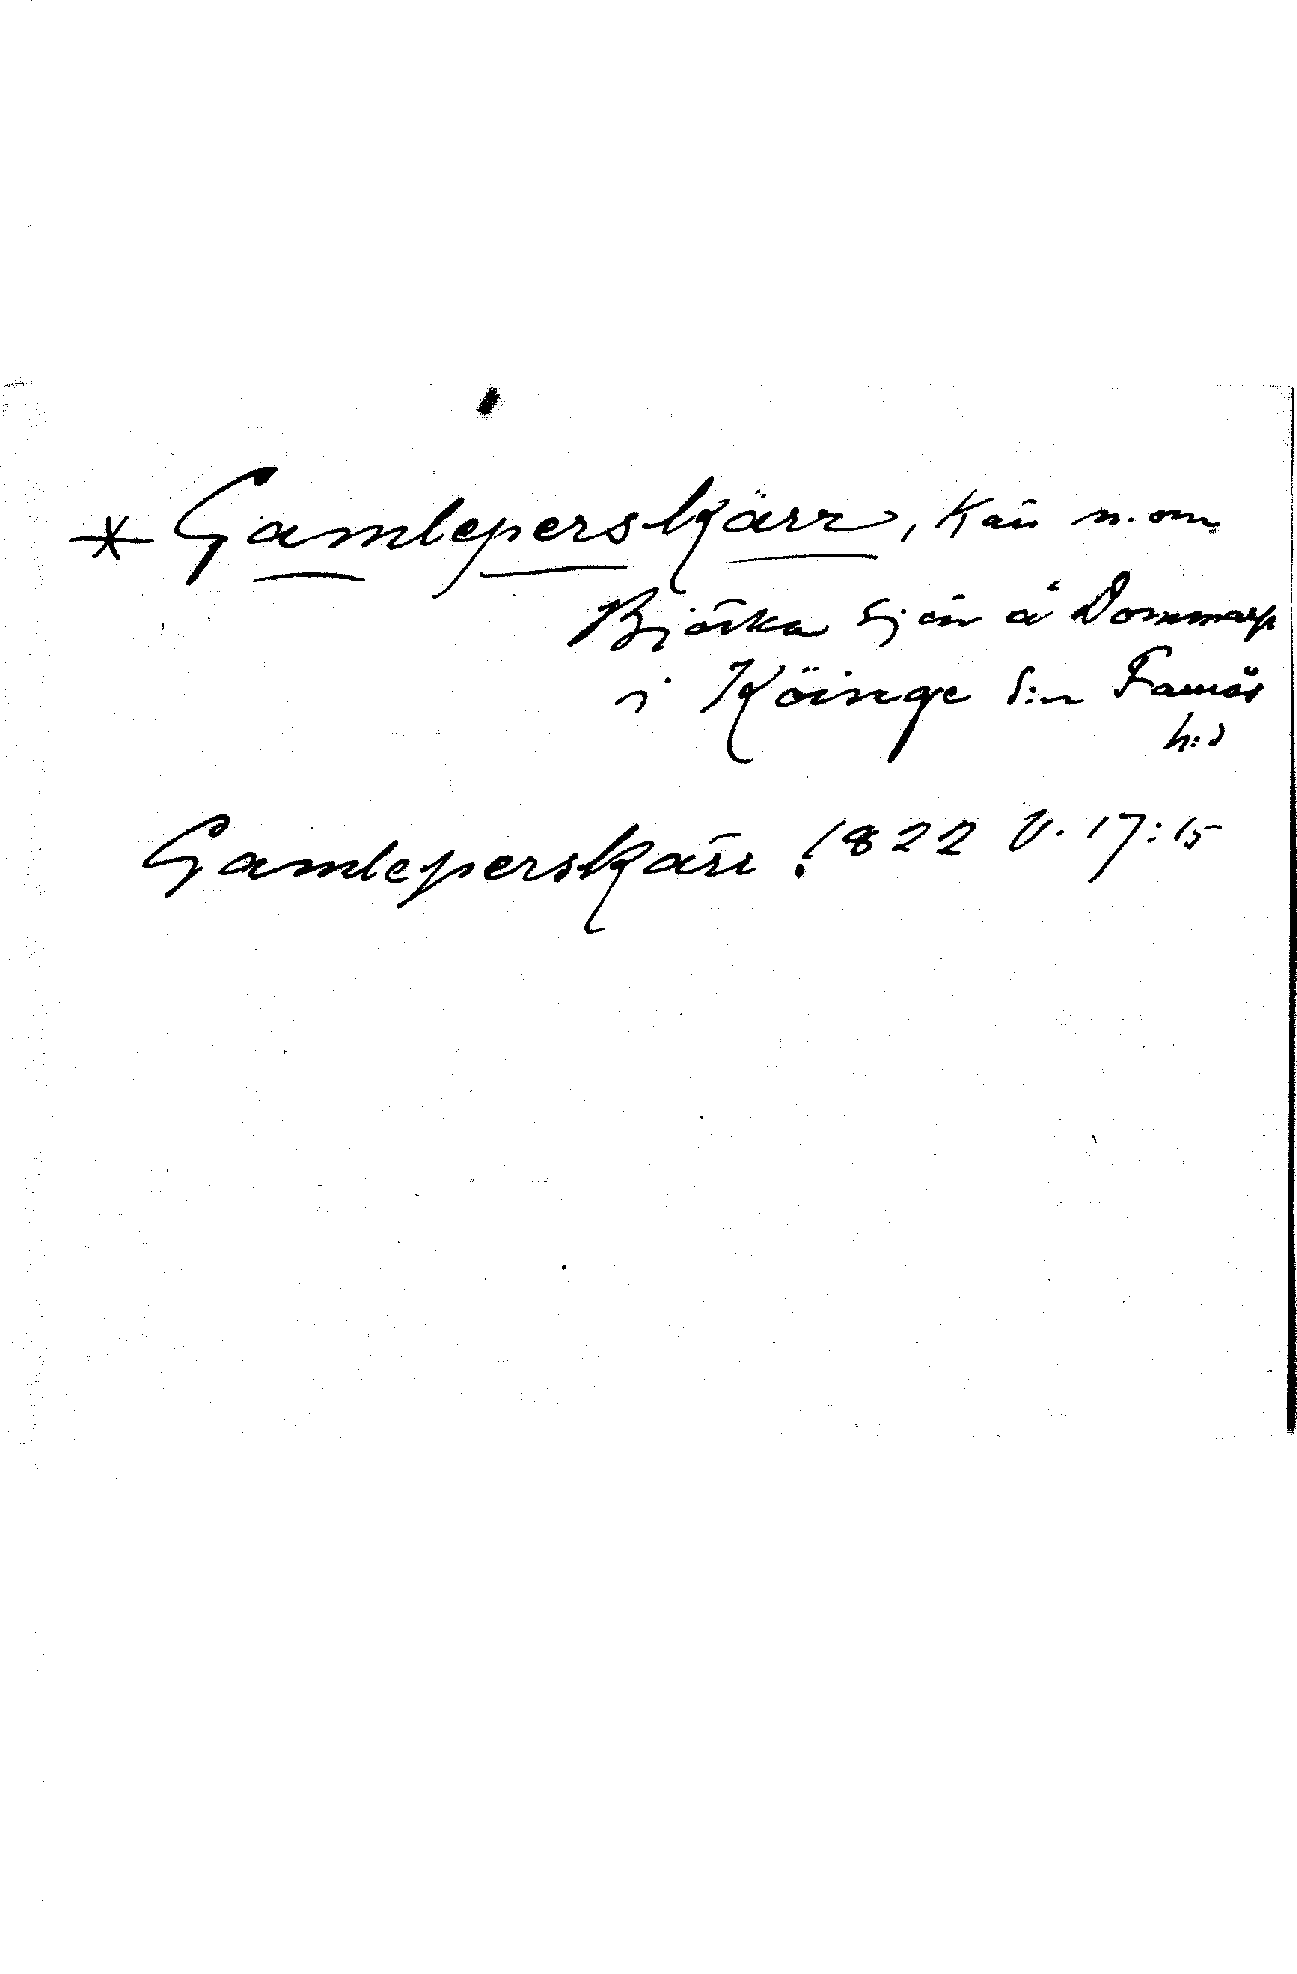 * Gamleperskärr, Kärr n. om
Björka sjön å Dommarp
i Köinge s:n Faurås
h:d
Gamleperskärr 1822 V. 17:15